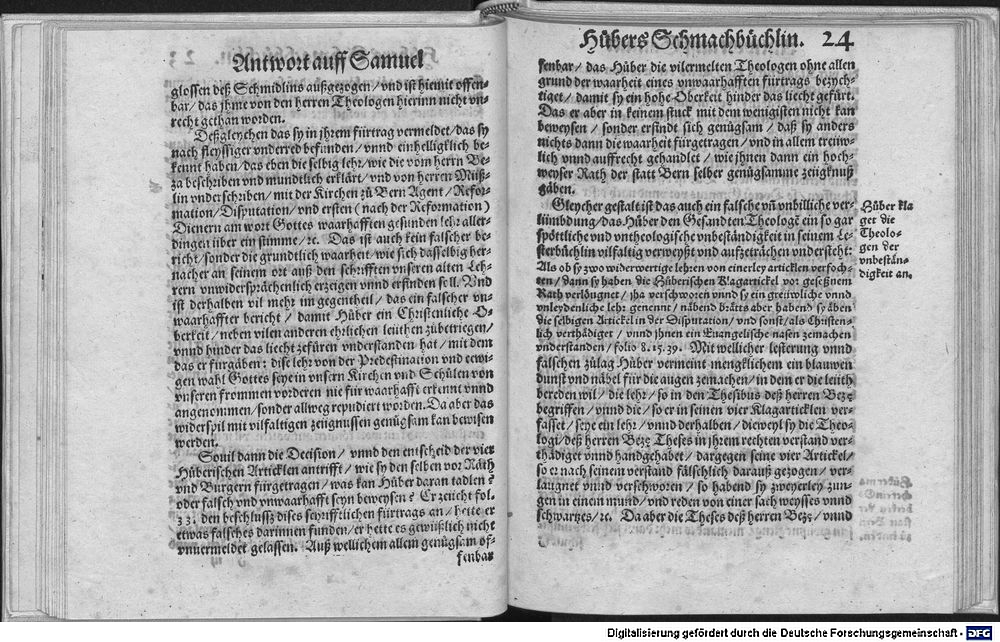 Antwort auff Samuel
glossen deß Schmidlins außgezogen / vnd ist hiemit offen-
bar / das jhme von den herren Theologen hierinn nicht vn-
recht gethan worden.
Deßgleychen das sy in jhrem fürtrag vermeldet / das sy
nach fleyssiger vnderred befunden / vnnd einhelligklich be-
kennt haben / das eben die selbig lehr / wie die vom herrn Be-
za beschriben vnd mundtlich erklärt / vnd von herren Müß-
lin vnderschriben / mit der Kirchen zů Bern Agent / Refor-
mation / Disputation / vnd ersten (nach der Reformation)
Dienern am wort Gottes waarhafften gesunden lehr aller-
dingen über ein stimme / ꝛc. Das ist auch kein falscher be-
richt / sonder die grundtlich waarheit / wie sich dasselbig her-
nacher an seinem ort auß den schrifften vnseren alten Leh-
rern vnwidersprächenlich erzeigen vnnd erfinden sell. Vnd
ist derhalben vil mehr im gegentheil / das ein falscher vn-
waarhaffter bericht / damit Hüber ein Christenliche O-
berkeit / neben vilen anderen ehrlichen leüthen zůbetriegen /
vnnd hinder das liecht zefüren vnderstanden hat / mit dem
das er fürgäben: dise lehr von der Predestination vnd eewi-
gen wahl Gottes seye in vnsern Kirchen vnd Schülen von
vnseren frommen vorderen nie für waarhafft erkennt vnnd
angenommen / sonder allweg repudiert worden. Da aber das
widerspil mit vilfaltigen zeügnussen genůgsam kan bewisen
werden.
Souil dann die Decision / vnnd den entscheid der vier
Hüberischen Articklen antrifft / wie sy den selben vor Räth
vnd Burgern fürgetragen / was kan Hüber daran tadlen?
oder falsch vnd vnwaarhafft seyn beweysen? Er zeücht fol.
33. den beschlusß dises schrifftlichen fürtrags an / hette er
etwas falsches darinnen funden / er hette es gewüßlich nicht
vnuermeldet gelassen. Auß wellichem allem genůgsam of-
fenbar
Hübers Schmachbüchlin. 24
fenbar / das Hüber die vilermelten Theologen ohne allen
grund der waarheit eines vnwaarhafften fürtrags bezych-
tiget / damit sy ein hohe Oberkeit hinder das liecht gefürt.
Das er aber in keinem stuck mit dem wenigisten nicht kan
beweysen / sonder erfindt sich genůgsam / daß sy anders
nichts dann die waarheit fürgetragen / vnd in allem treüw-
lich vnnd auffrecht gehandlet / wie jhnen dann ein hoch-
weyser Rath der statt Bern selber genůgsamme zeügknuß
gäben.
Gleycher gestalt ist das auch ein falsche vñ vnbilliche ver-
lümbdung / das Hüber den Gesandten Theologẽ ein so gar
spöttliche vnd vntheologische vnbeständigkeit in seinem Le-
sterbüchlin vilfaltig verweyßt vnd aufzeträchen vndersteht:
Als ob sy zwo widerwertige lehren von einerley articklen verfoch-
ten / dann sy haben die Hüberischen Klagartickel vor gesessnem
Rath verlöugnet / jha verschworen vnnd sy ein greüwliche vnnd
vnleydenliche lehr genennt / näbend brätts aber habend sy äben
die selbigen Artickel in der Disputation / vnd sonst / als Christen-
lich verthädiget / vnnd jhnen ein Euangelische nasen zemachen
vnderstanden / folio 8. 15. 39. Mit wellicher lesterung vnnd
falschen zůlag Hüber vermeint mengklichem ein blauwen
dunst vnd näbel für die augen zemachen / in dem er die leüth
bereden wil / die lehr / so in den Thesibus deß herren Bezę
begriffen / vnnd die / so er in seinen vier Klagarticklen ver-
fasset / seye ein lehr / vnnd derhalben / dieweyl sy die Theo-
logi / deß herren Bezę Theses in jhrem rechten verstand ver-
thädiget vnnd handgehabet / dargegen seine vier Artickel /
so er nach seinem verstand fälschlich darauß gezogen / ver-
laugnet vnnd verschworen / so habend sy zweyerley zun-
gen in einem mund / vnd reden von einer sach weysses vnnd
schwartzes / ꝛc. Da aber die Theses deß herren Bezę / vnnd
Hüber kla
get die
Theolo-
gen der
vnbestän-
digkeit an.
Digitalisierung gefördert durch die Deutsche Forschungsgemeinschaft - DFG